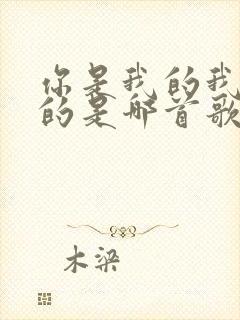 你是我的我
的是哪首歌
木梁